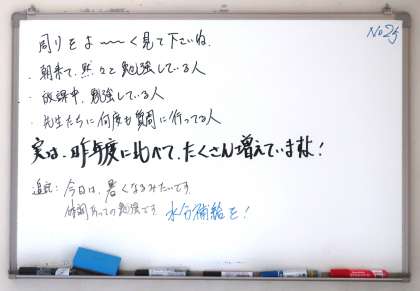 No24
周りをよ〜〜く見て下さいね。
・朝来て、黙々と勉強している人
・放課中、勉強している人
・先生たちに何度も質問に行ってる人
実は、昨年度に比べて、たくさん増えていますよ!
追記:今日は、暑くなるみたいです
体調あっての勉強です 水分補給を!